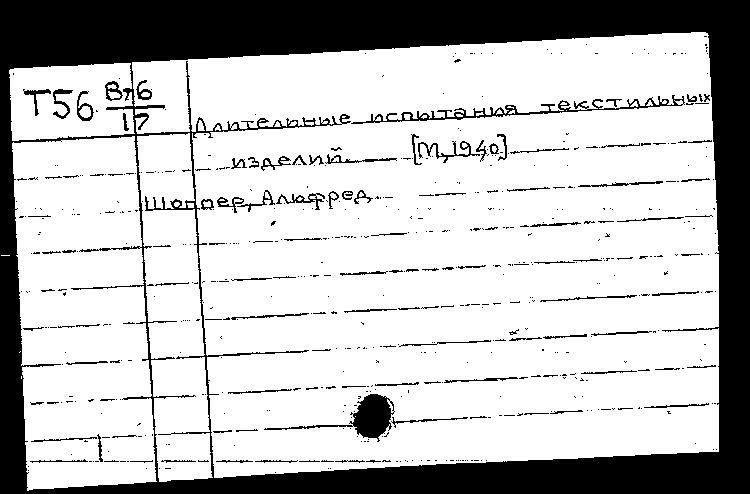 Т56 Вл6
17
Длительные испытания текстильных
изделий. [М, 1940]
Шоппер, Альфред